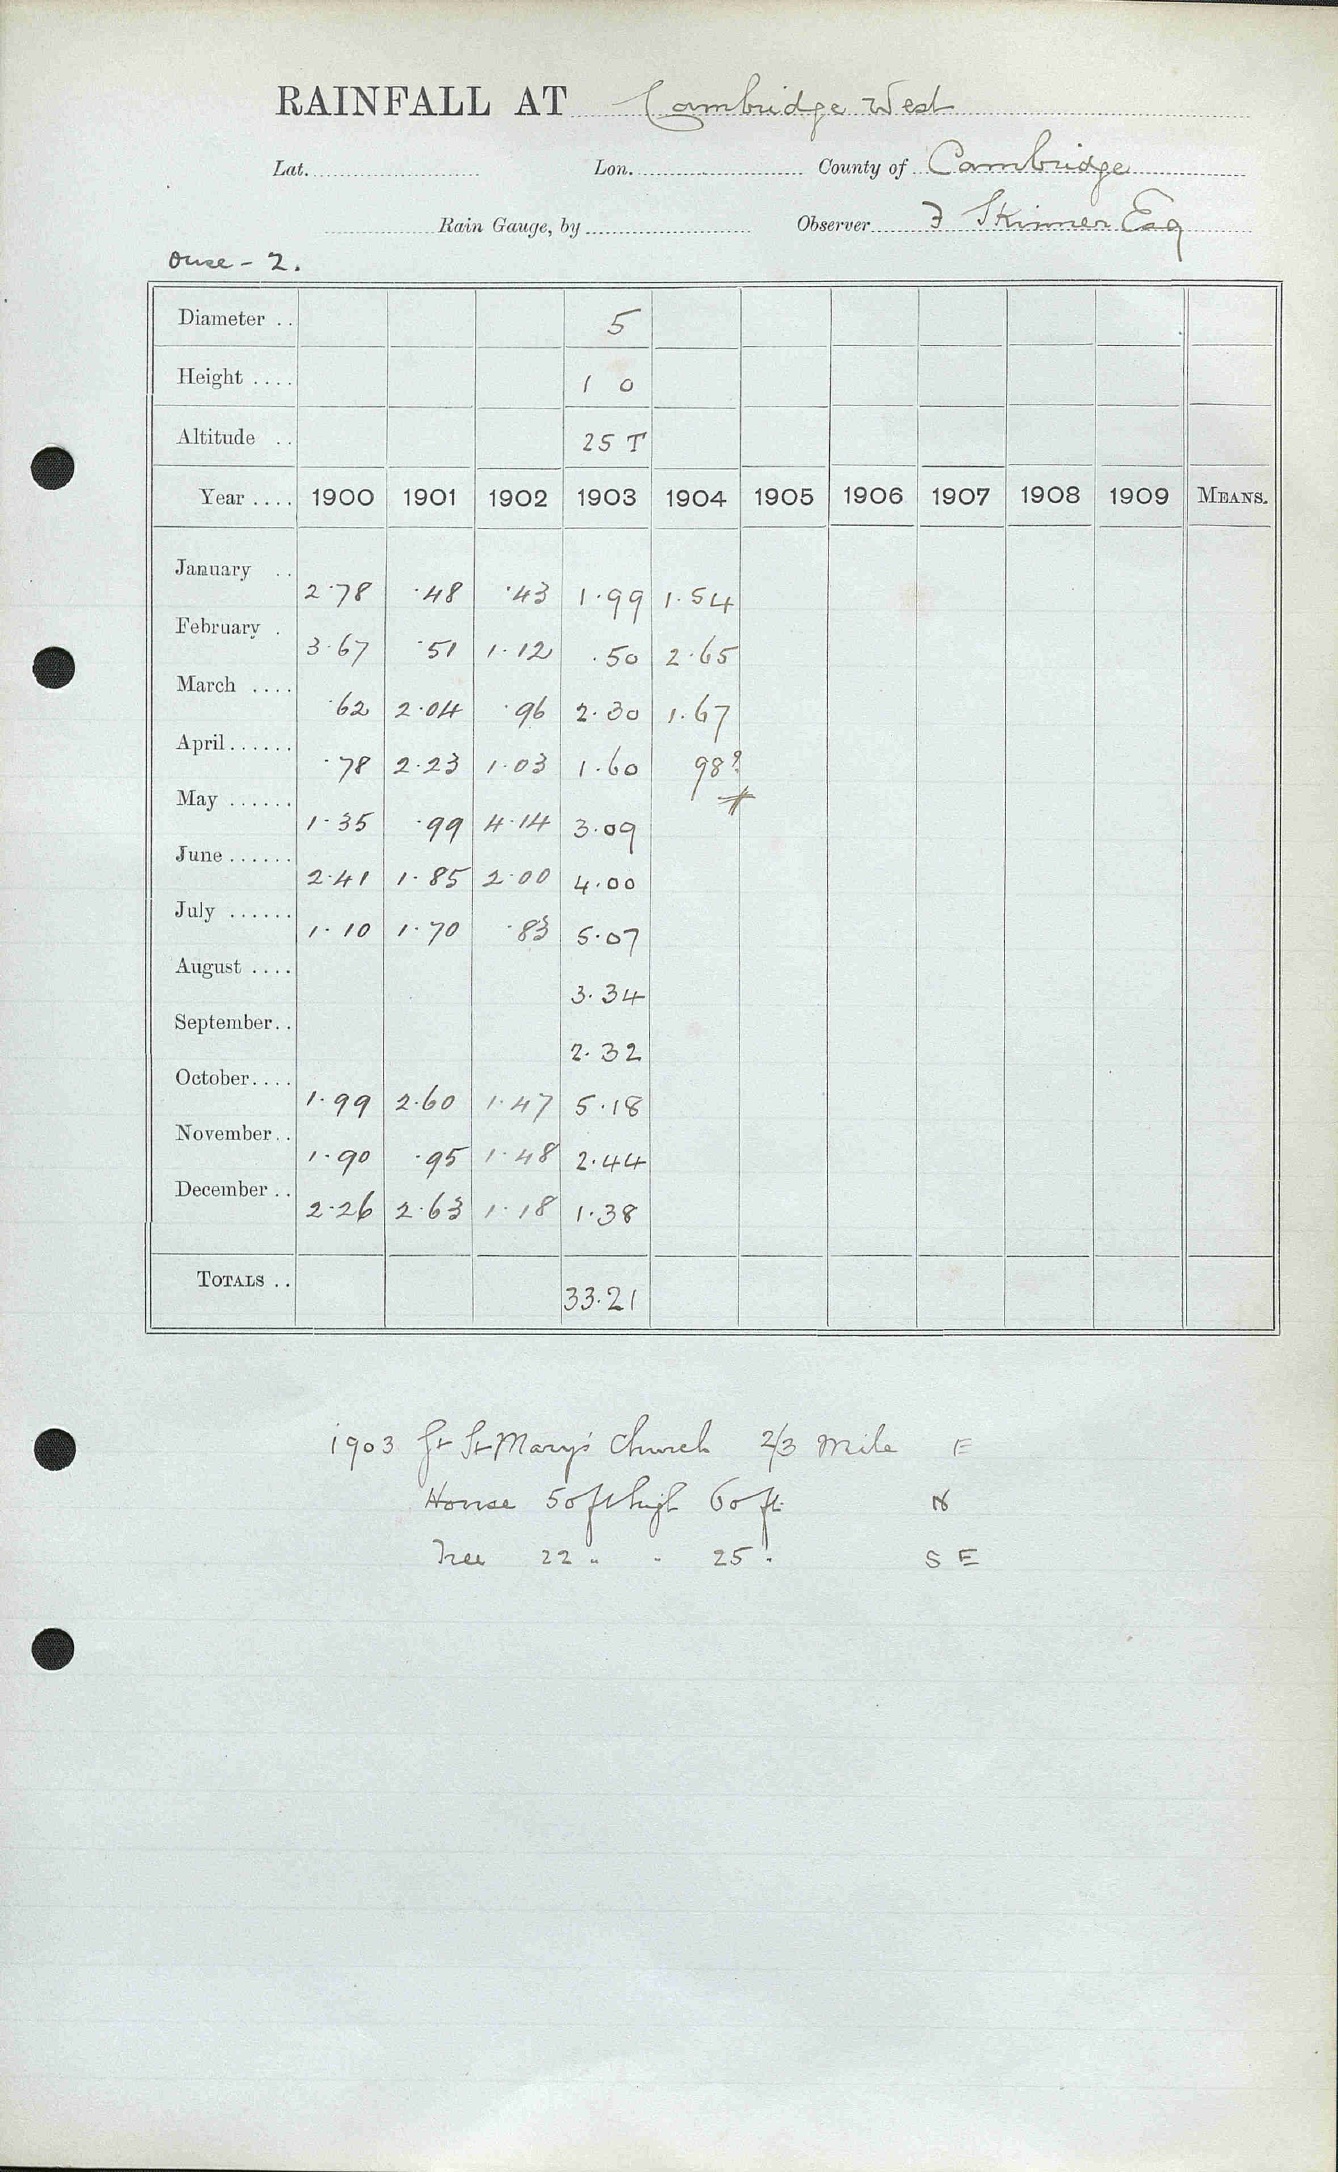 RAINFALL AT Cambridge West
Lat. Lon. County of Cambridge
Rain Gauge, by Observer F Skinner Esq
Ouse - 2.
Diameter .. 5
Height .... 1 0
Altitude .. 25 T
Year .... 1900 1901 1902 1903 1904 1905 1906 1907 1908 1909 MEANS.
January .. 2.78 .48 .43 1.99 1.54
February . 3.67 .51 1.12 .50 2.65
March .... .62 2.04 .96 2.30 1.67
April...... .78 2.23 1.03 1.60 98?
May ...... 1.35 .99 4.14 3.09
June...... 2.41 1.85 2.00 4.00
July ...... 1.10 1.70 .83 5.07
August .... 3.34
September.. 2.32
October.... 1.99 2.60 1.47 5.18
November.. 1.90 .95 1.48 2.44
December .. 2.26 2.63 1.18 1.38
TOTALS .. 33.21
1903 Gt St Mary's Church 2/3 Mile E
House 50 ft high 60 ft N
Tree 22 " " 25 " S E